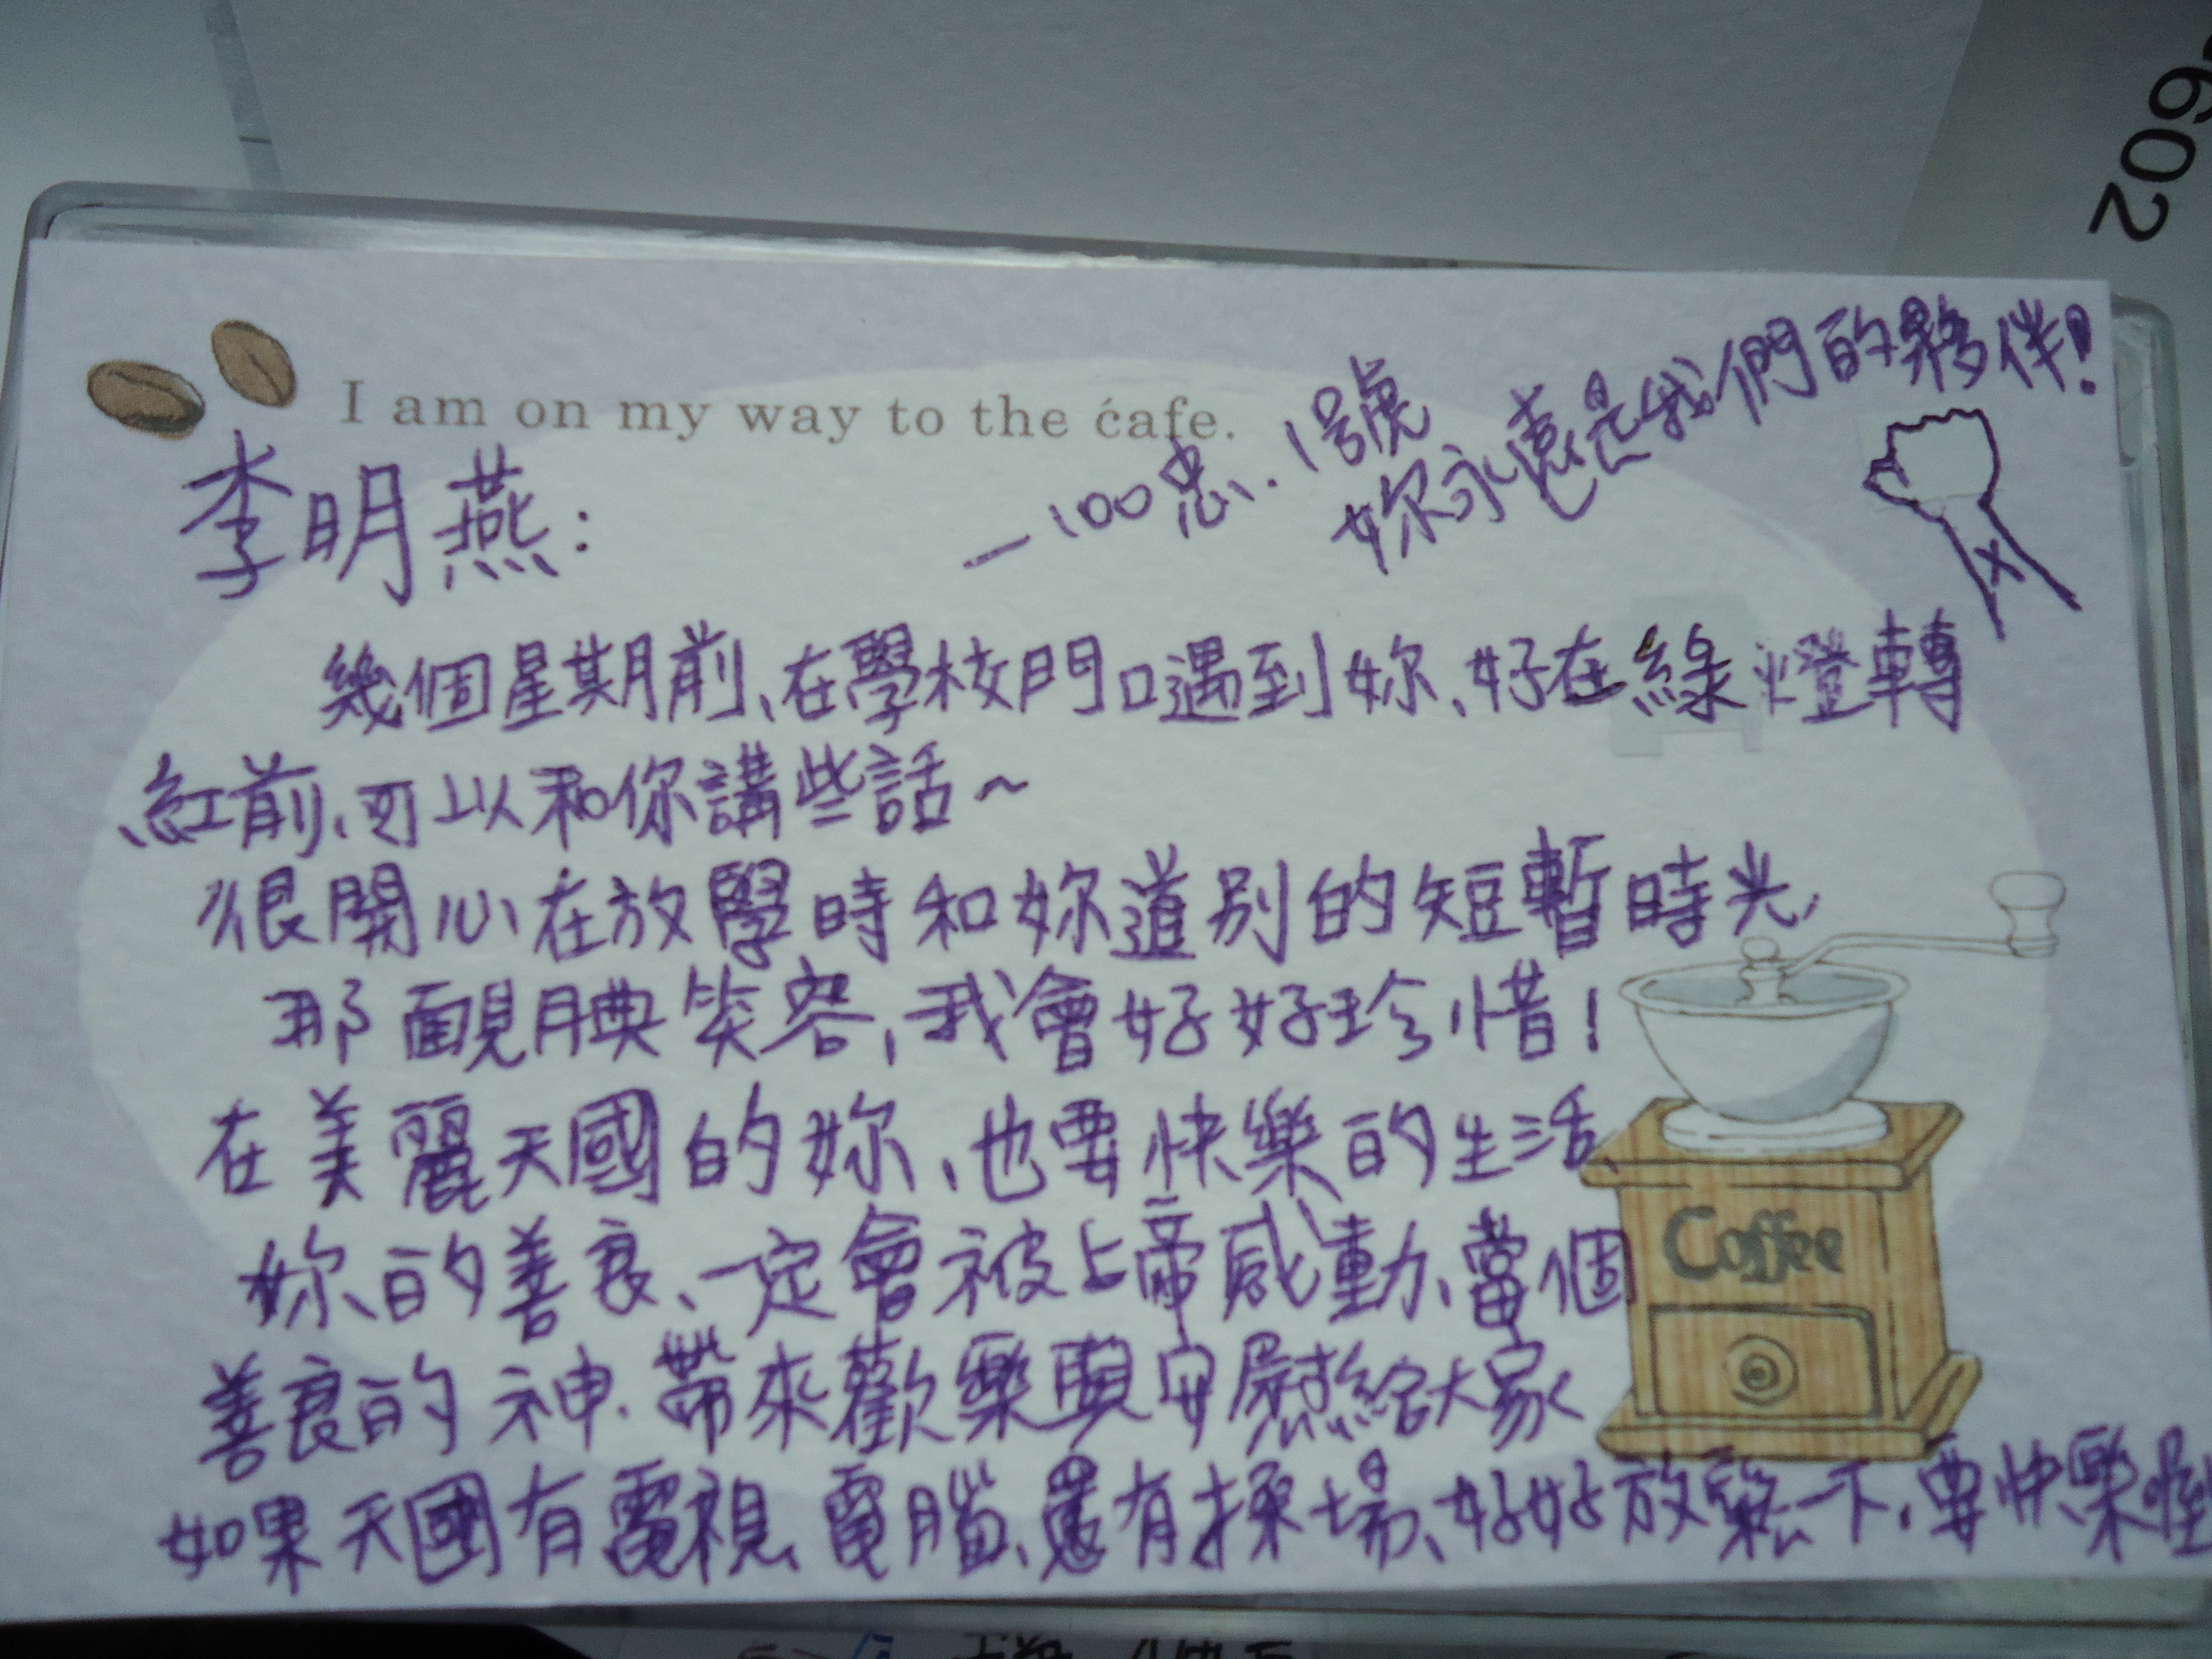 602
I am on my way to the cafe.
李明燕：
—100忠.1號
妳永遠是我們的夥伴!
幾個星期前、在學校門口遇到妳、好在綠燈轉
紅前、可以和你講些話~
很開心在放學時和妳道別的短暫時光,
那靦腆笑容,我會好好珍惜!
在美麗天國的妳、也要快樂的生活、
妳的善良、一定會被上帝感動、當個
善良的神、帶來歡樂與安慰給大家
如果天國有電視、電腦、還有操場、好好放鬆一下、要快樂喔
Coffee